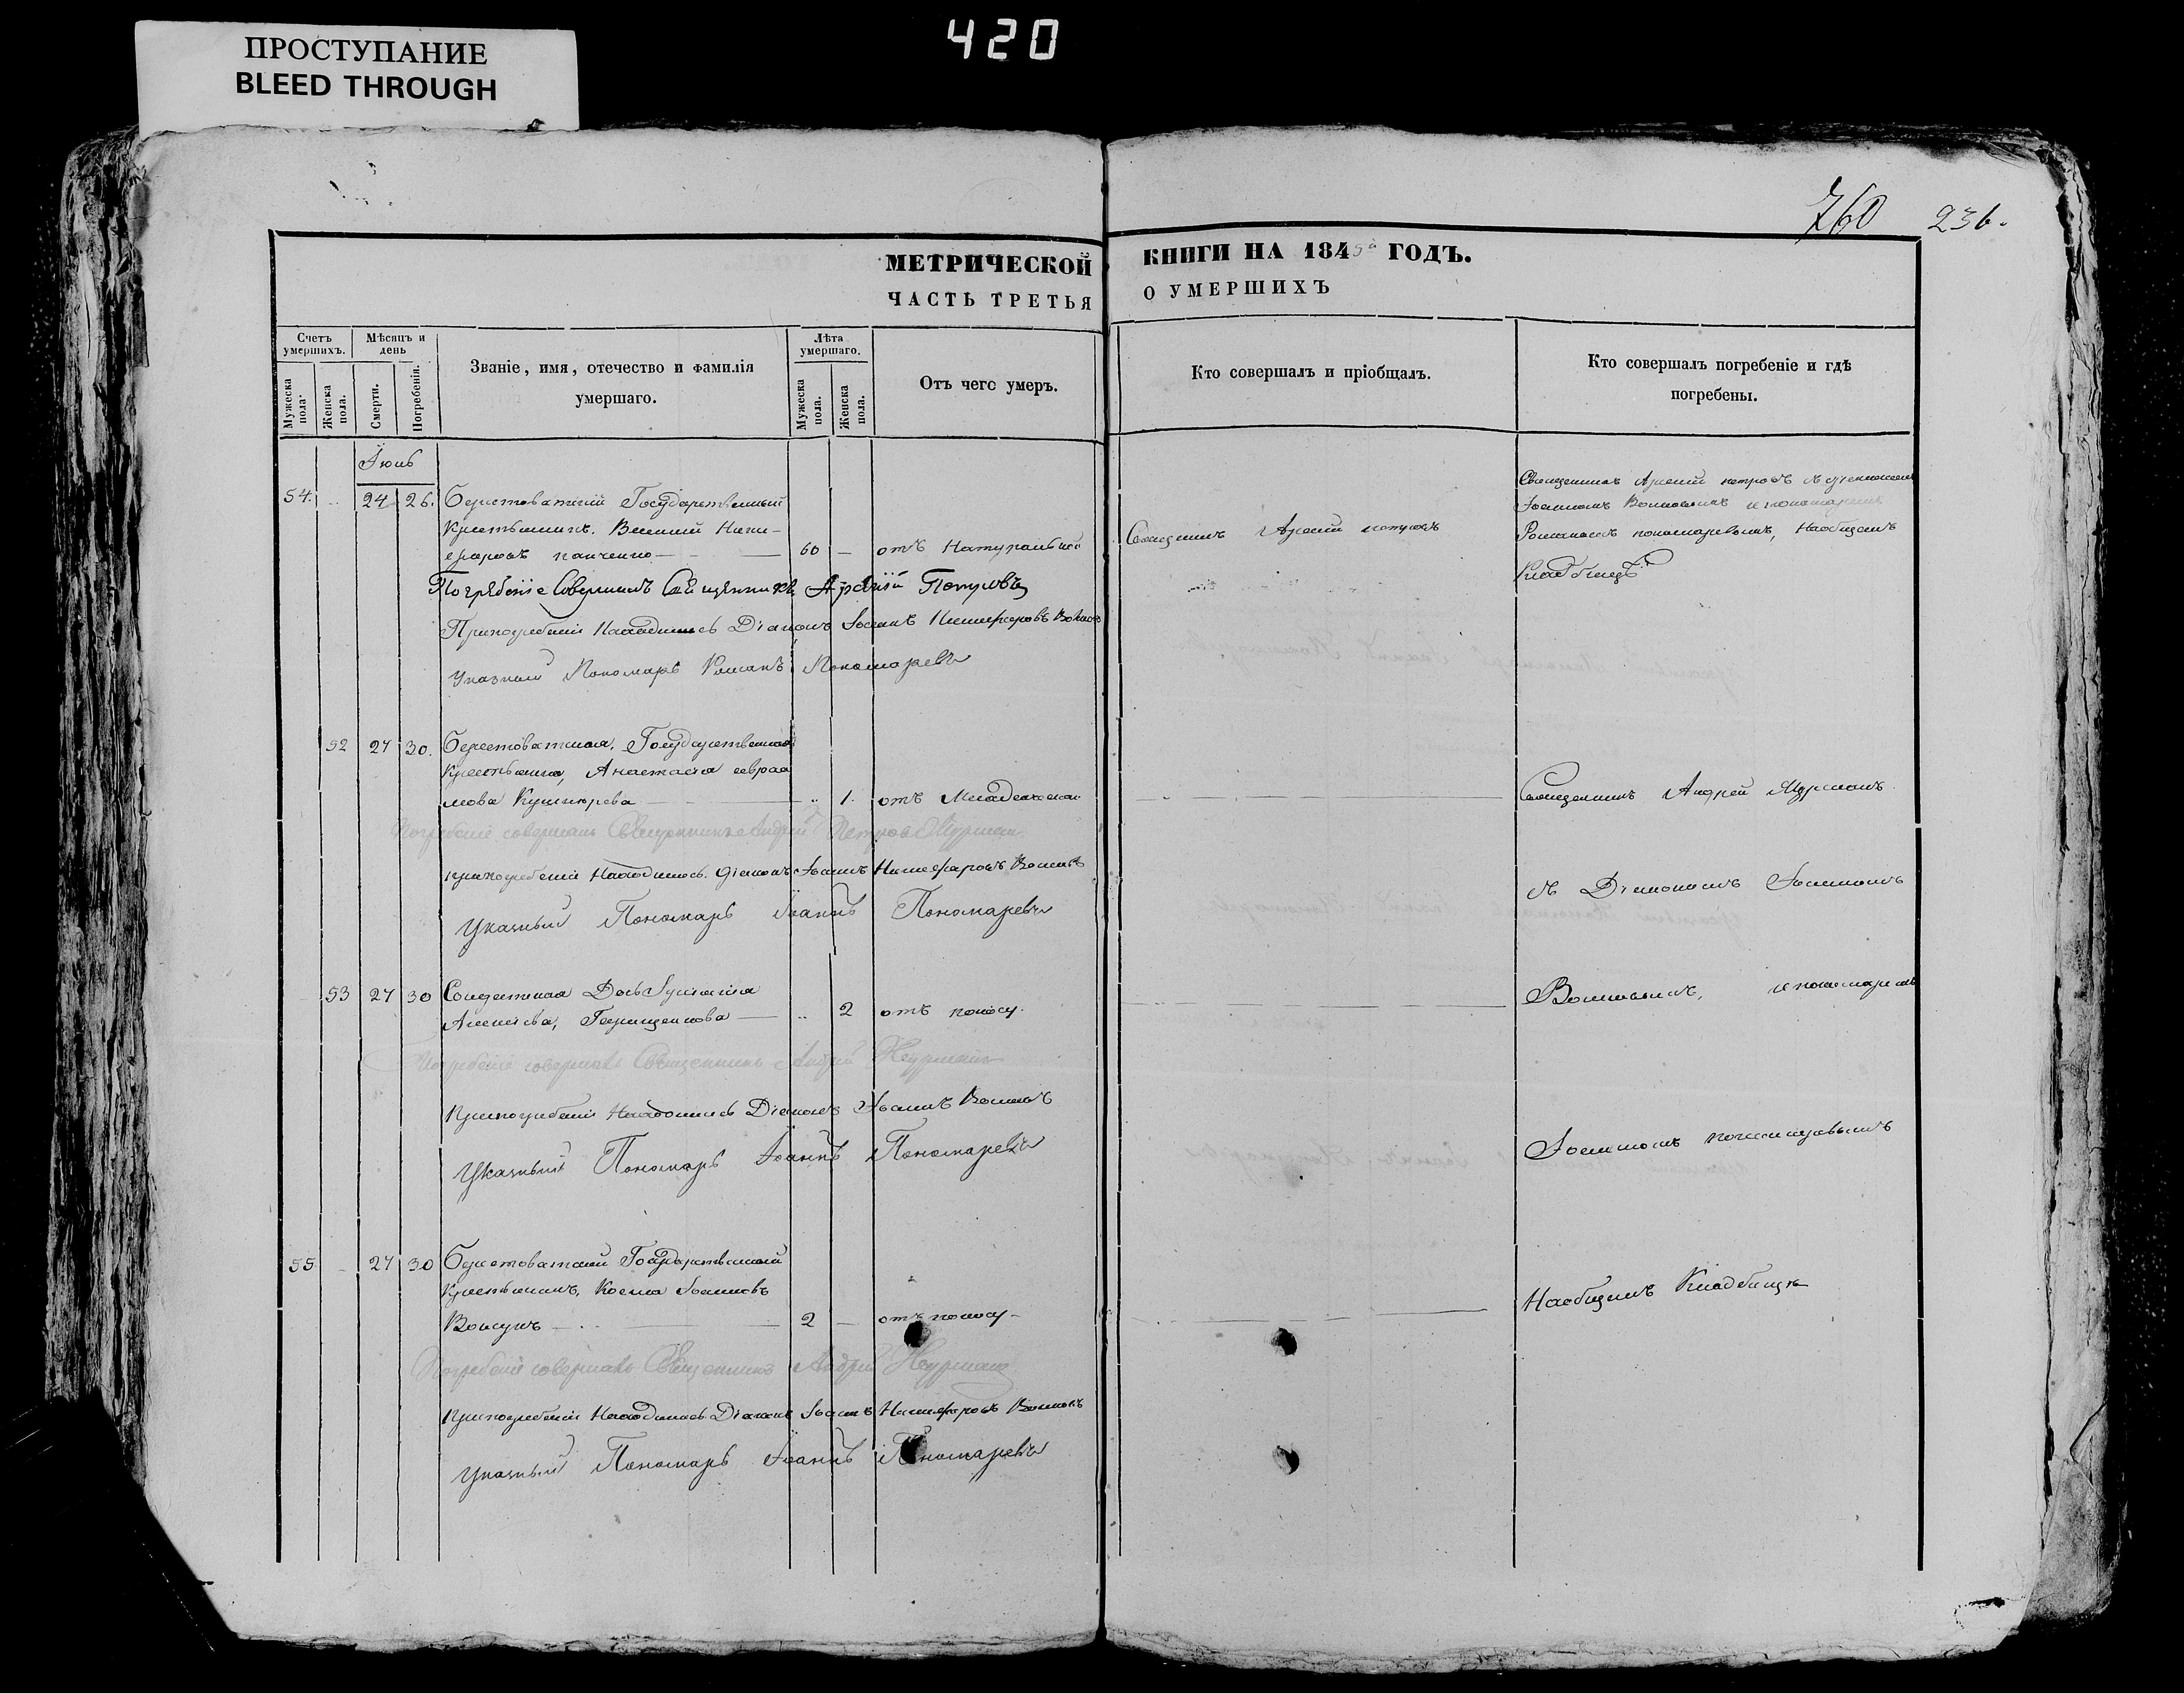 420
ПРОСТУПАНИЕ
BLEED THROUGH
760 236.
МЕТРИЧЕСКОЙ КНИГИ НА 1845 ГОДЪ.
ЧАСТЬ ТРЕТЬЯ О УМЕРШИХЪ
Счетъ умершихъ.
Мужеска пола.
Женска пола.
Мѣсяцъ и день
Смерти.
Погребенія.
Званіе, имя, отечество и фамилія
умершаго.
Лѣта умершаго.
Мужеска пола.
Женска пола.
Отъ чего умеръ.
Кто совершалъ и пріобщалъ.
Кто совершалъ погребеніе и гдѣ
погребены.
54. 24 26. Берестоватскій Государственный
Крестьянинъ
панченко 60 отъ Натуральной
Священникъ Арсеній петровъ
Священникъ Арсеній петровъ
Іоанномъ Волковымъ и пономаремъ
Романомъ пономаревымъ, Наобщемъ
Кладбищѣ
Погребеніе Совершалъ Священникъ Арсеній Петровъ
При погребеніи Находились Діаконъ Іоаннъ Никифоровъ Волковъ
Указный Пономарь Романъ Пономаревъ
52 27 30. Берестоватская Государственная
Крестьянка, Анастасія
мова Кушнирева 1. отъ Младенческой
Погребеніе совершалъ Священникъ Андрей Петровъ
при погребеніи Находились Діаконъ Іоаннъ Никифоровъ Волковъ
Указный Пономарь Іоаннъ Пономаревъ
Священникъ Андрей
съ Діакономъ Іоанномъ
53 27 30 Солдатская Дочь
Геращенкова 2 отъ поносу.
Погребеніе совершалъ Священникъ Андрей
При погребеніи Находились Діаконъ Іоаннъ Волковъ
Указный Пономарь Іоаннъ Пономаревъ
Волковымъ, и пономаремъ
Іоанномъ пономаревымъ
55 27 30 Берестоватскій Государственный
Крестьянинъ, Косма Іоанновъ
2 отъ поносу
Погребеніе совершалъ Священникъ Андрей
При погребеніи Находились Діаконъ Іоаннъ Никифоровъ Волковъ
Указный Пономарь Іоаннъ Пономаревъ
Наобщемъ Кладбищѣ